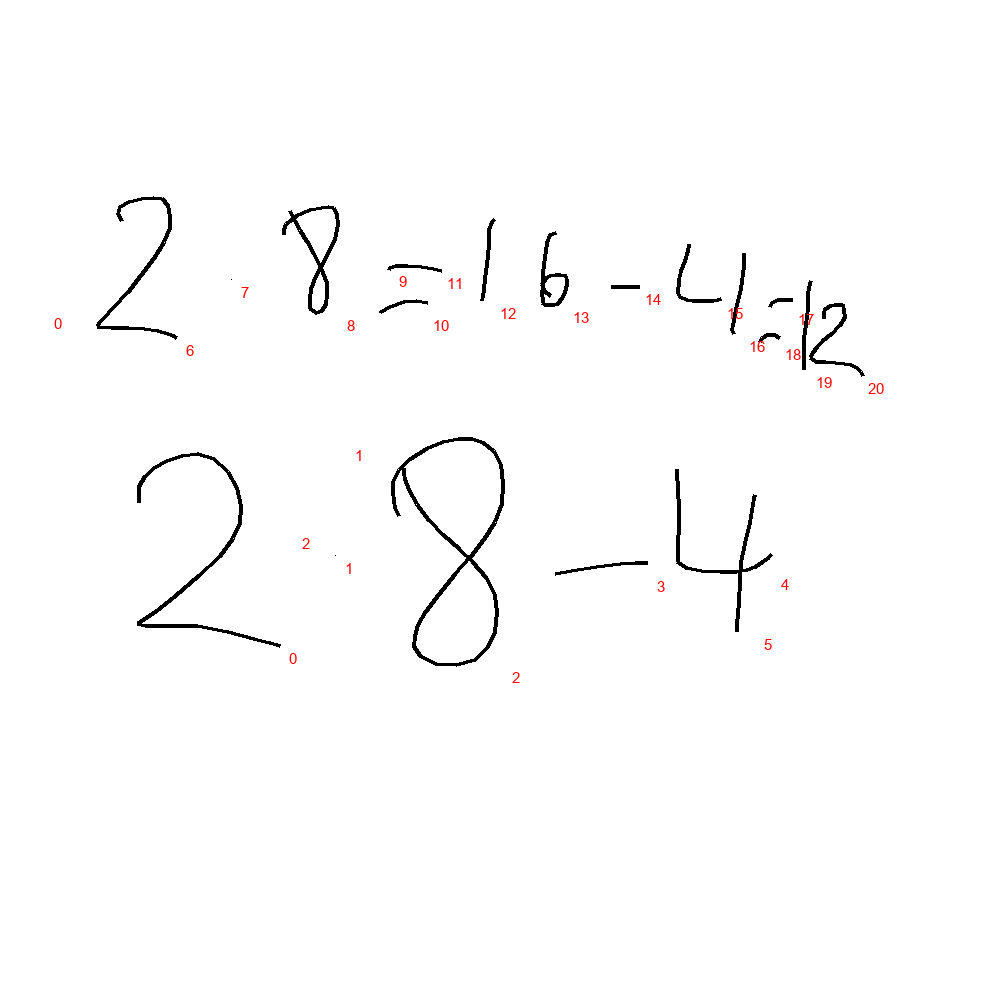 2 · 8 = 16 - 4 = 12
2 · 8 - 4
0 6 7 8 9 11 10 12 13 14 15 16 17 18 19 20
1 2 1 0 2 3 4 5